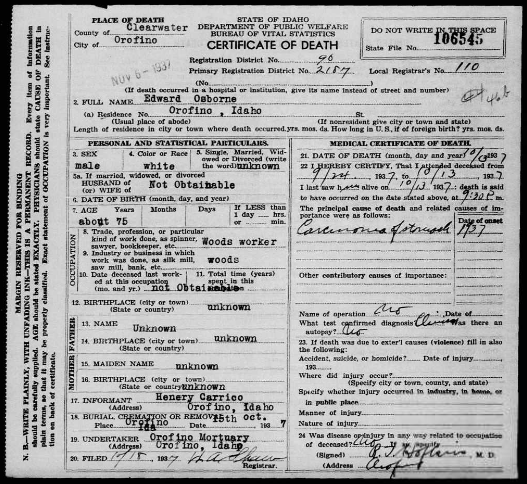 PLACE OF DEATH
County of Clearwater
City of Orofino
STATE OF IDAHO
DEPARTMENT OF PUBLIC WELFARE
BUREAU OF VITAL STATISTICS
CERTIFICATE OF DEATH
DO NOT WRITE IN THIS SPACE
106545
State File No.
NOV 6-1937
Registration District No. 90
Primary Registration District No. 2187 Local Registrar's No. 110
(If death occurred in a hospital or institution, give its name instead of street and number)
2. FULL NAME Edward Osborne
(a) Residence No. Orofino, Idaho
(Usual place of abode) (If nonresident give city or town and state)
Length of residence in city or town where death occurred, yrs. mos. ds. How long in U. S., if of foreign birth? yrs. mos. ds.
PERSONAL AND STATISTICAL PARTICULARS.
3. SEX male
4. Color or Race white
5. Single, Married, Widowed or Divorced (write the word) unknown
5a. If married, widowed, or divorced
HUSBAND OF (or) WIFE of Not Obtainable
6. DATE OF BIRTH (month, day, and year)
7. AGE Years about 75 Months Days If LESS than 1 day hrs. or min.
OCCUPATION
8. Trade, profession, or particular kind of work done, as spinner, sawyer, bookkeeper, etc. Woods worker
9. Industry or business in which work was done, as silk mill, saw mill, bank, etc. woods
10. Date deceased last worked at this occupation (mo. and yr.) not Obtainable
11. Total time (years) spent in this
12. BIRTHPLACE (city or town) (State or country) unknown
FATHER
13. NAME Unknown
14. BIRTHPLACE (city or town) (State or country) Unknown
MOTHER
15. MAIDEN NAME unknown
16. BIRTHPLACE (city or town) (State or country) unknown
17. INFORMANT Henery Carrico
(Address) Orofino, Idaho
18. BURIAL CREMATION OR REMOVAL
Orofino Ida 15th oct. 1937
19. UNDERTAKER Orofino Mortuary
(Address) Orofino, Idaho
20. FILED 193 Registrar.
MEDICAL CERTIFICATE OF DEATH.
21. DATE OF DEATH (month, day and year) 10/13 1937
22. I HEREBY CERTIFY, That I attended deceased from
9/24 1937 to 10/13 1937
I last saw alive on 10/13 1937; death is said
to have occurred on the date stated above, at
The principal cause of death and related causes of importance were as follows:
Date of onset
Carcinoma of stomach 1937
Other contributory causes of importance:
Name of operation no Date of
What test confirmed diagnosis Was there an autopsy? no
23. If death was due to exter'l causes (violence) fill in also the following:
Accident, suicide, or homicide? Date of injury
193
Where did injury occur?
(Specify city or town, county, and state)
Specify whether injury occurred in industry, in home, or in public place
Manner of injury
Nature of injury
24 Was disease or injury in any way related to occupation of deceased? no
(Signed) M. D.
(Address) Orofino
MARGIN RESERVED FOR BINDING
N. B.—WRITE PLAINLY, WITH UNFADING INK—THIS IS A PERMANENT RECORD. Every item of information should be carefully supplied. AGE should be stated EXACTLY. PHYSICIANS should state CAUSE OF DEATH in plain terms, so that it may be properly classified. Exact statement of OCCUPATION is very important. See instruction on back of certificate.